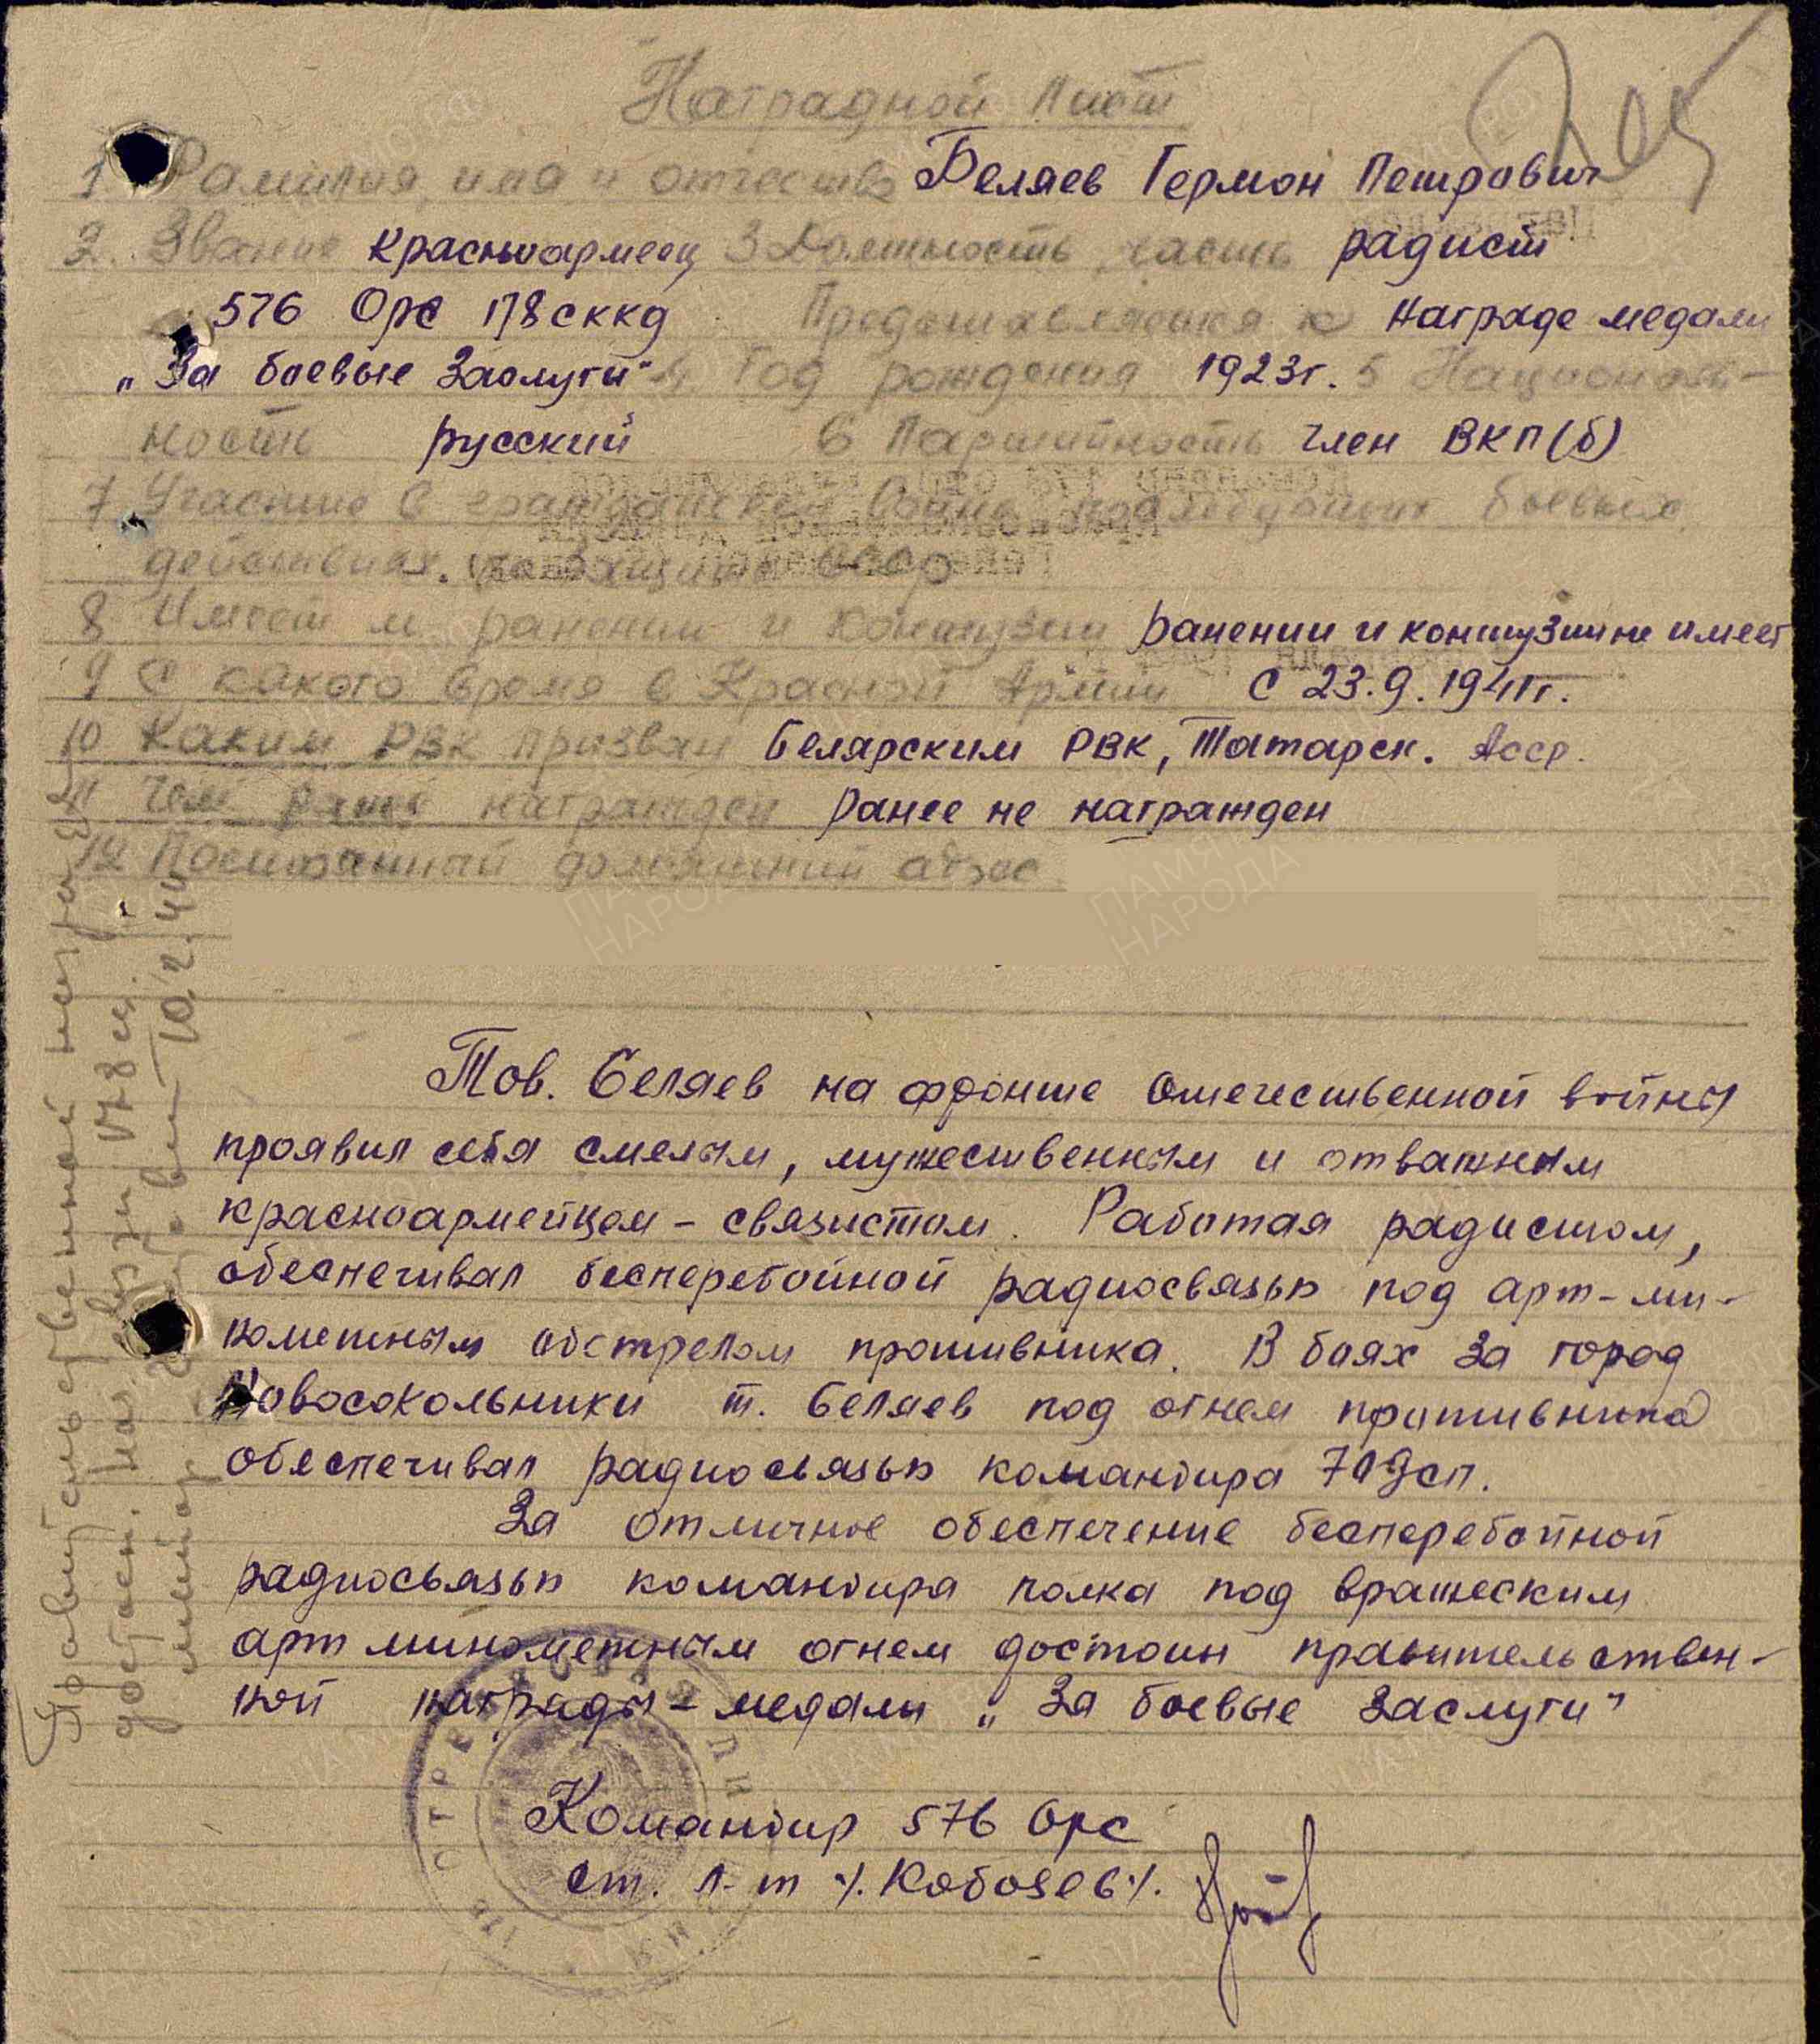 Наградной Лист
1 Фамилия, имя и отчество Беляев Гермон Петрович
2. Звание красноармеец 3 Должность, часть радист
576 Орс 178сккд Представляется к награде медали
„За боевые Заслуги" 4 Год рождения 1923г. 5 Националь-
ность русский 6 Партийность член ВКП(б)
7 Участие в гражданской войне, последующих боевых
действиях по защите СССР
8 Имеет ли ранении и контузии ранении и контузии не имеет
9 С какого время в Красной Армии с 23.9.1941г.
10 Каким РВК призван Белярским РВК, Татарск. Асср.
11 Чем ранее награжден ранее не награжден
12 Постоянный домашний адрес
Тов. Беляев на фронте Отечественной войны
проявил себя смелым, мужественным и отважным
красноармейцем - связистом. Работая радистом,
обеспечивал бесперебойной радиосвязью под арт-ми-
нометным обстрелом противника. В боях за город
Новосокольники т. Беляев под огнем противника
обеспечивал радиосвязью командира 709сп.
За отличное обеспечение бесперебойной
радиосвязью командира полка под вражеским
арт минометным огнем достоин правительствен-
ной награды - медали „За боевые заслуги"
Командир 576 Орс
ст. л-т /.Кобозев/.
Правительственной награды
достоин. Нач. связи 178 сд.
майор 10.2.44